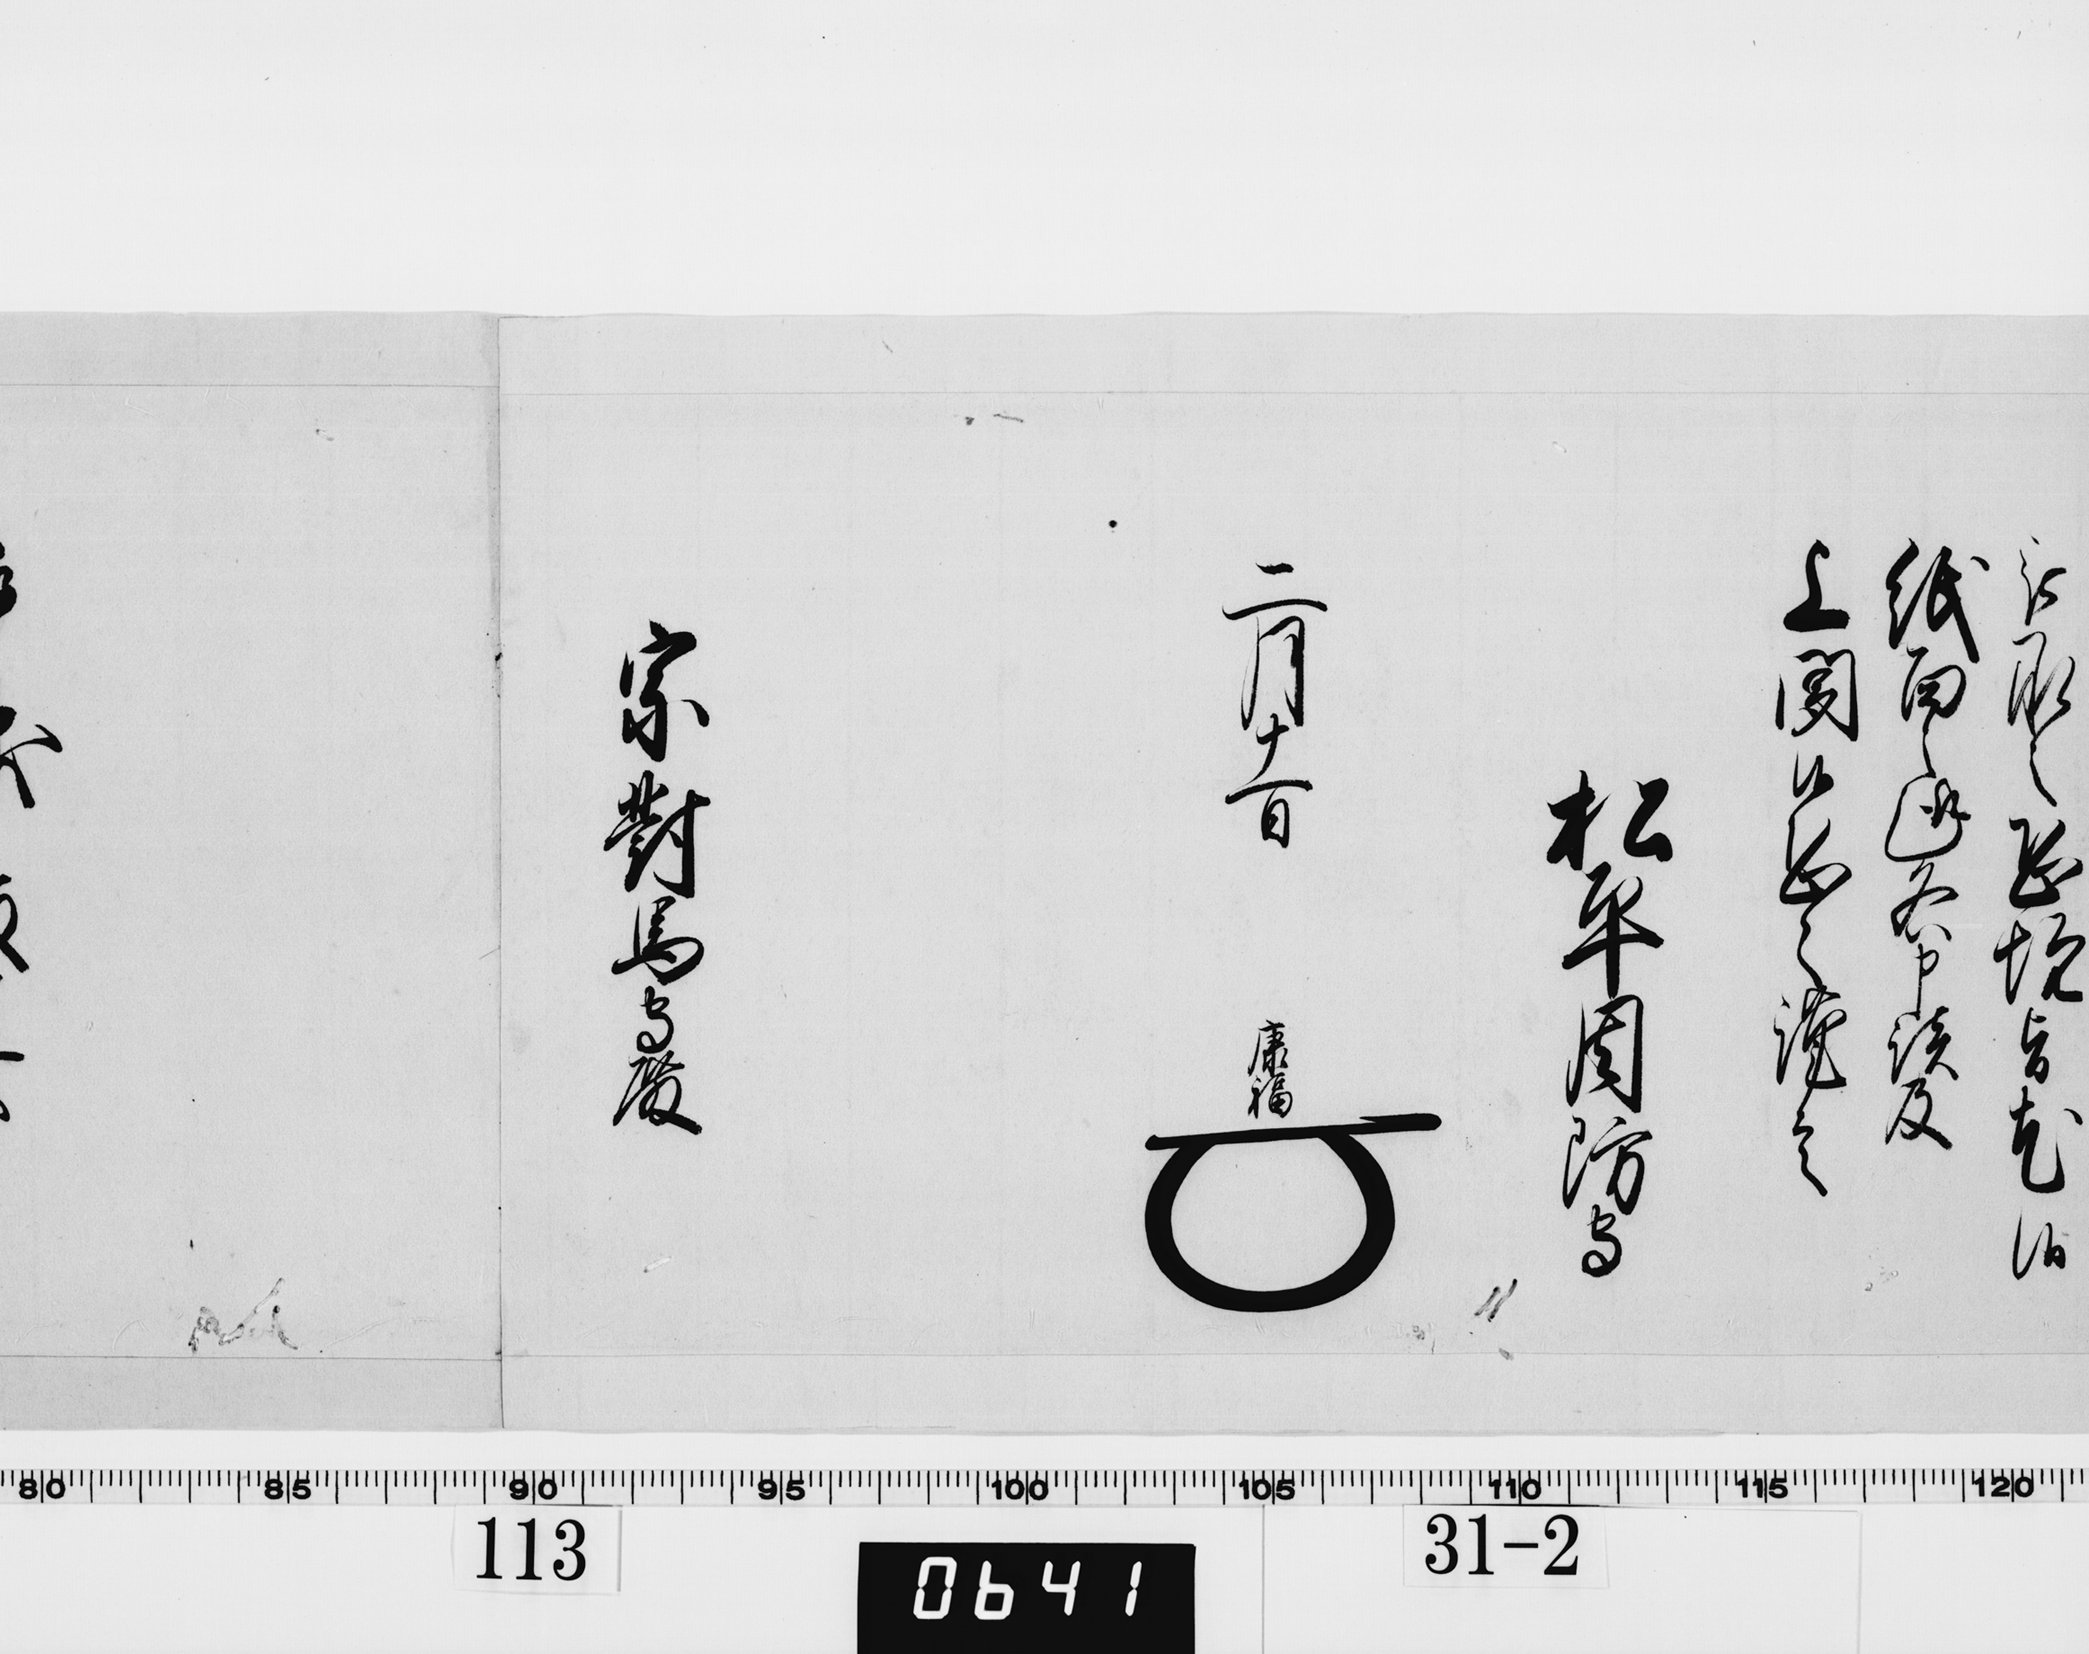 紙面之趣各申談及
上聞候恐々謹言
松平周防守
二月十一日
康福
宗對馬守殿
80 85 90 95 100 105 110 115 120
113
0641
31-2